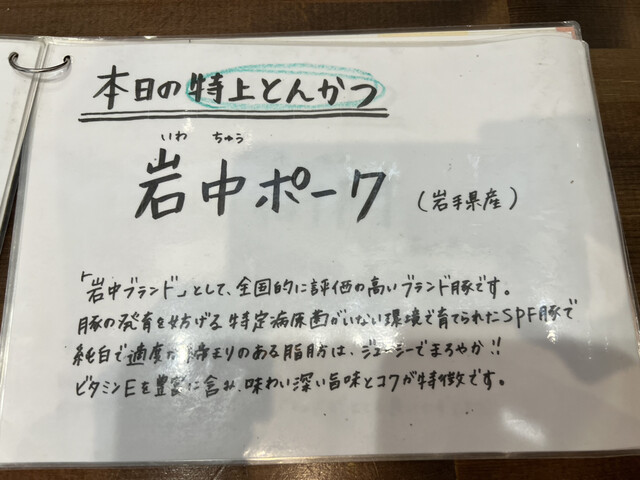 本日の特上とんかつ
いわ ちゅう
岩中ポーク (岩手県産)
「岩中ブランド」として、全国的に評価の高いブランド豚です。
豚の発育を妨げる特定病原菌がいない環境で育てられたSPF豚で
純白で適度な締まりのある脂肪は、ジューシーでまろやか!!
ビタミンEを豊富に含み、味わい深い旨味とコクが特徴です。